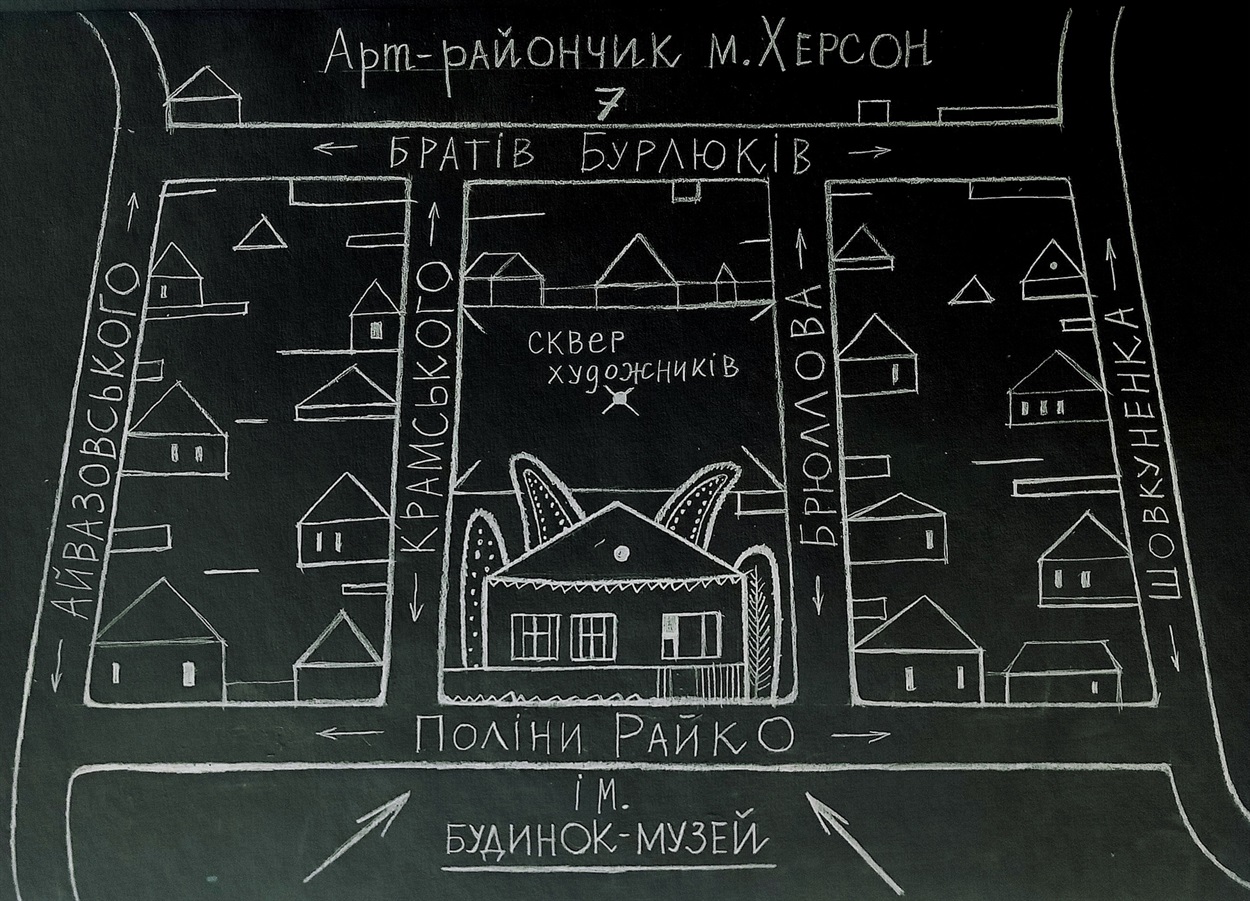 Арт-райончик м. Херсон
7
← БРАТІВ БУРЛЮКІВ →
← АЙВАЗОВСЬКОГО →
← КРАМСЬКОГО →
сквер
художників
← БРЮЛЛОВА →
← ШОВКУНЕНКА →
← ПОЛІНИ РАЙКО →
ім.
БУДИНОК-МУЗЕЙ